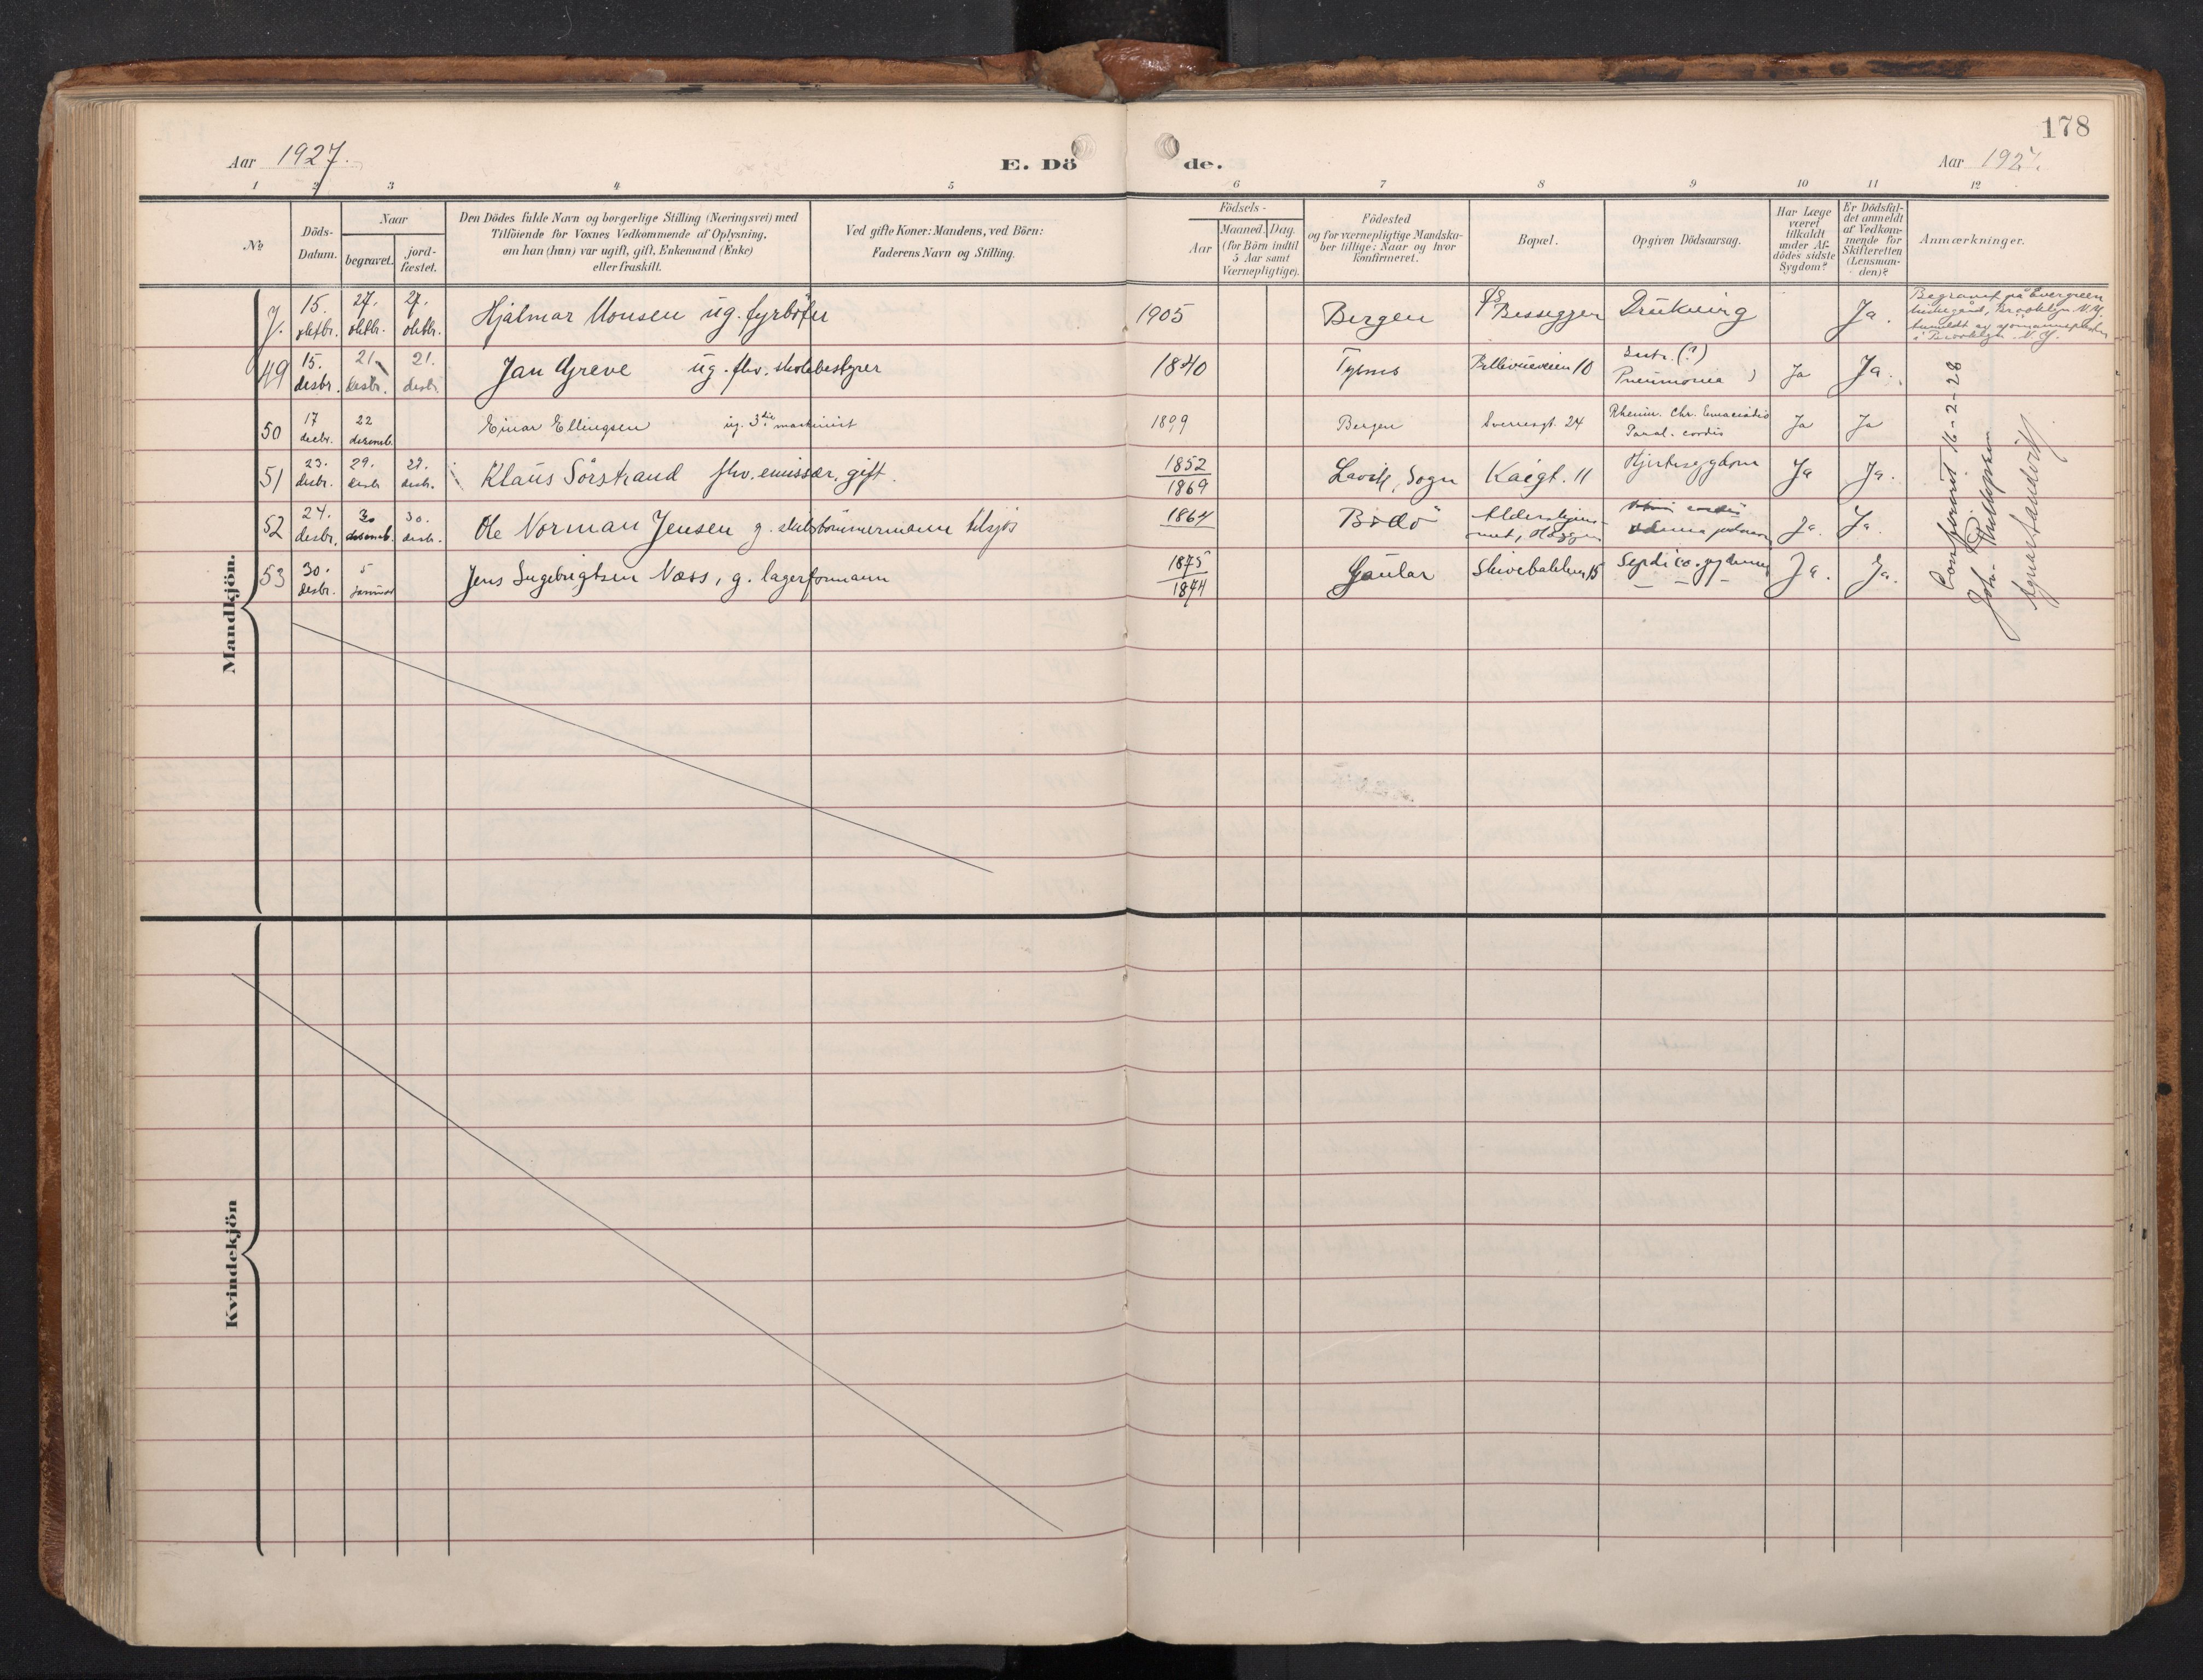 178
Aar 1927.
E. Dö
de.
Aar 1927.
1 2 3 4 5 6 7 8 9 10 11 12
No
Döds-
Datum.
Naar
begravet.
jord-
fæstet.
Den Dödes fulde Navn og borgerlige Stilling (Næringsvei) med
Tilföiende for Voxnes Vedkommende af Oplysning,
om han (hun) var ugift, gift, Enkemand (Enke)
eller fraskilt.
Ved gifte Koner: Mandens, ved Börn:
Faderens Navn og Stilling.
Födsels-
Aar
Maaned. Dag.
(for Börn indtil
5 Aar samt
Værnepligtige).
Födested
og for værnepligtige Mandska-
ber tillige: Naar og hvor
konfirmeret.
Bopæl.
Opgiven Dödsaarsag.
Har Læge
været
tilkaldt
under Af-
dödes sidste
Sygdom?
Er Dödsfal-
det anmeldt
af Vedkom-
mende for
Skifteretten
(Lensman-
den)?
Anmærkninger.
Mandkjön.
7. 15. oktbr. 27. oktbr. 27. oktbr. Hjalmar Monsen ug. fyrböter 1905 Bergen Bessegen Drukning Ja.
Begravet på Evergreen
kirkegård, Brooklyn N.Y.
anmeldt av sjømannspresten
i Brooklyn. N.Y.
49 15. desbr. 21. desbr. 21. desbr. Jan Greve ug. fhv. skolebestyrer 1840 Tysnes Bellevueveien 10 (?)
Pneumonia Ja Ja.
50 17 decbr. 22 desemb. Einar Ellingsen ug. 3die maskinist Bergen Sverresgt. 24 Rheum. chr. Emaciatio
Paral. cordis Ja Ja
51 23. desbr. 29. desbr 29. desbr. Klaus Sörstrand fhv. emissær, gift. 1852
1869 Lavik, Sogn Kaigt. 11 Hjertesygdom Ja Ja.
52 24. desbr. 30 desemb. 30. desbr. Ole Norman Jensen g. skibstömmermann tilsjös 1864 Bodö Ja. Ja.
53 30. desbr. 5 januar Jens Ingebrigtsen Næss, g. lagerformann 1875
1874 Gaular Skivebakken 15 Ja. Ja.
Conferert 16-2-28
Joh.
Agnes Sandvik
Kvindekjön